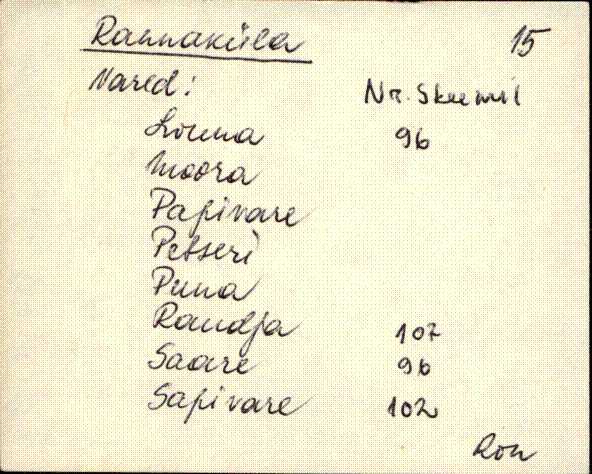 Rannaküla 15
Nared: Nr. Skeemil
Louna 96
Moora
Papivare
Petseri
Puna
Raudja 107
Saare 96
Sapivare 102